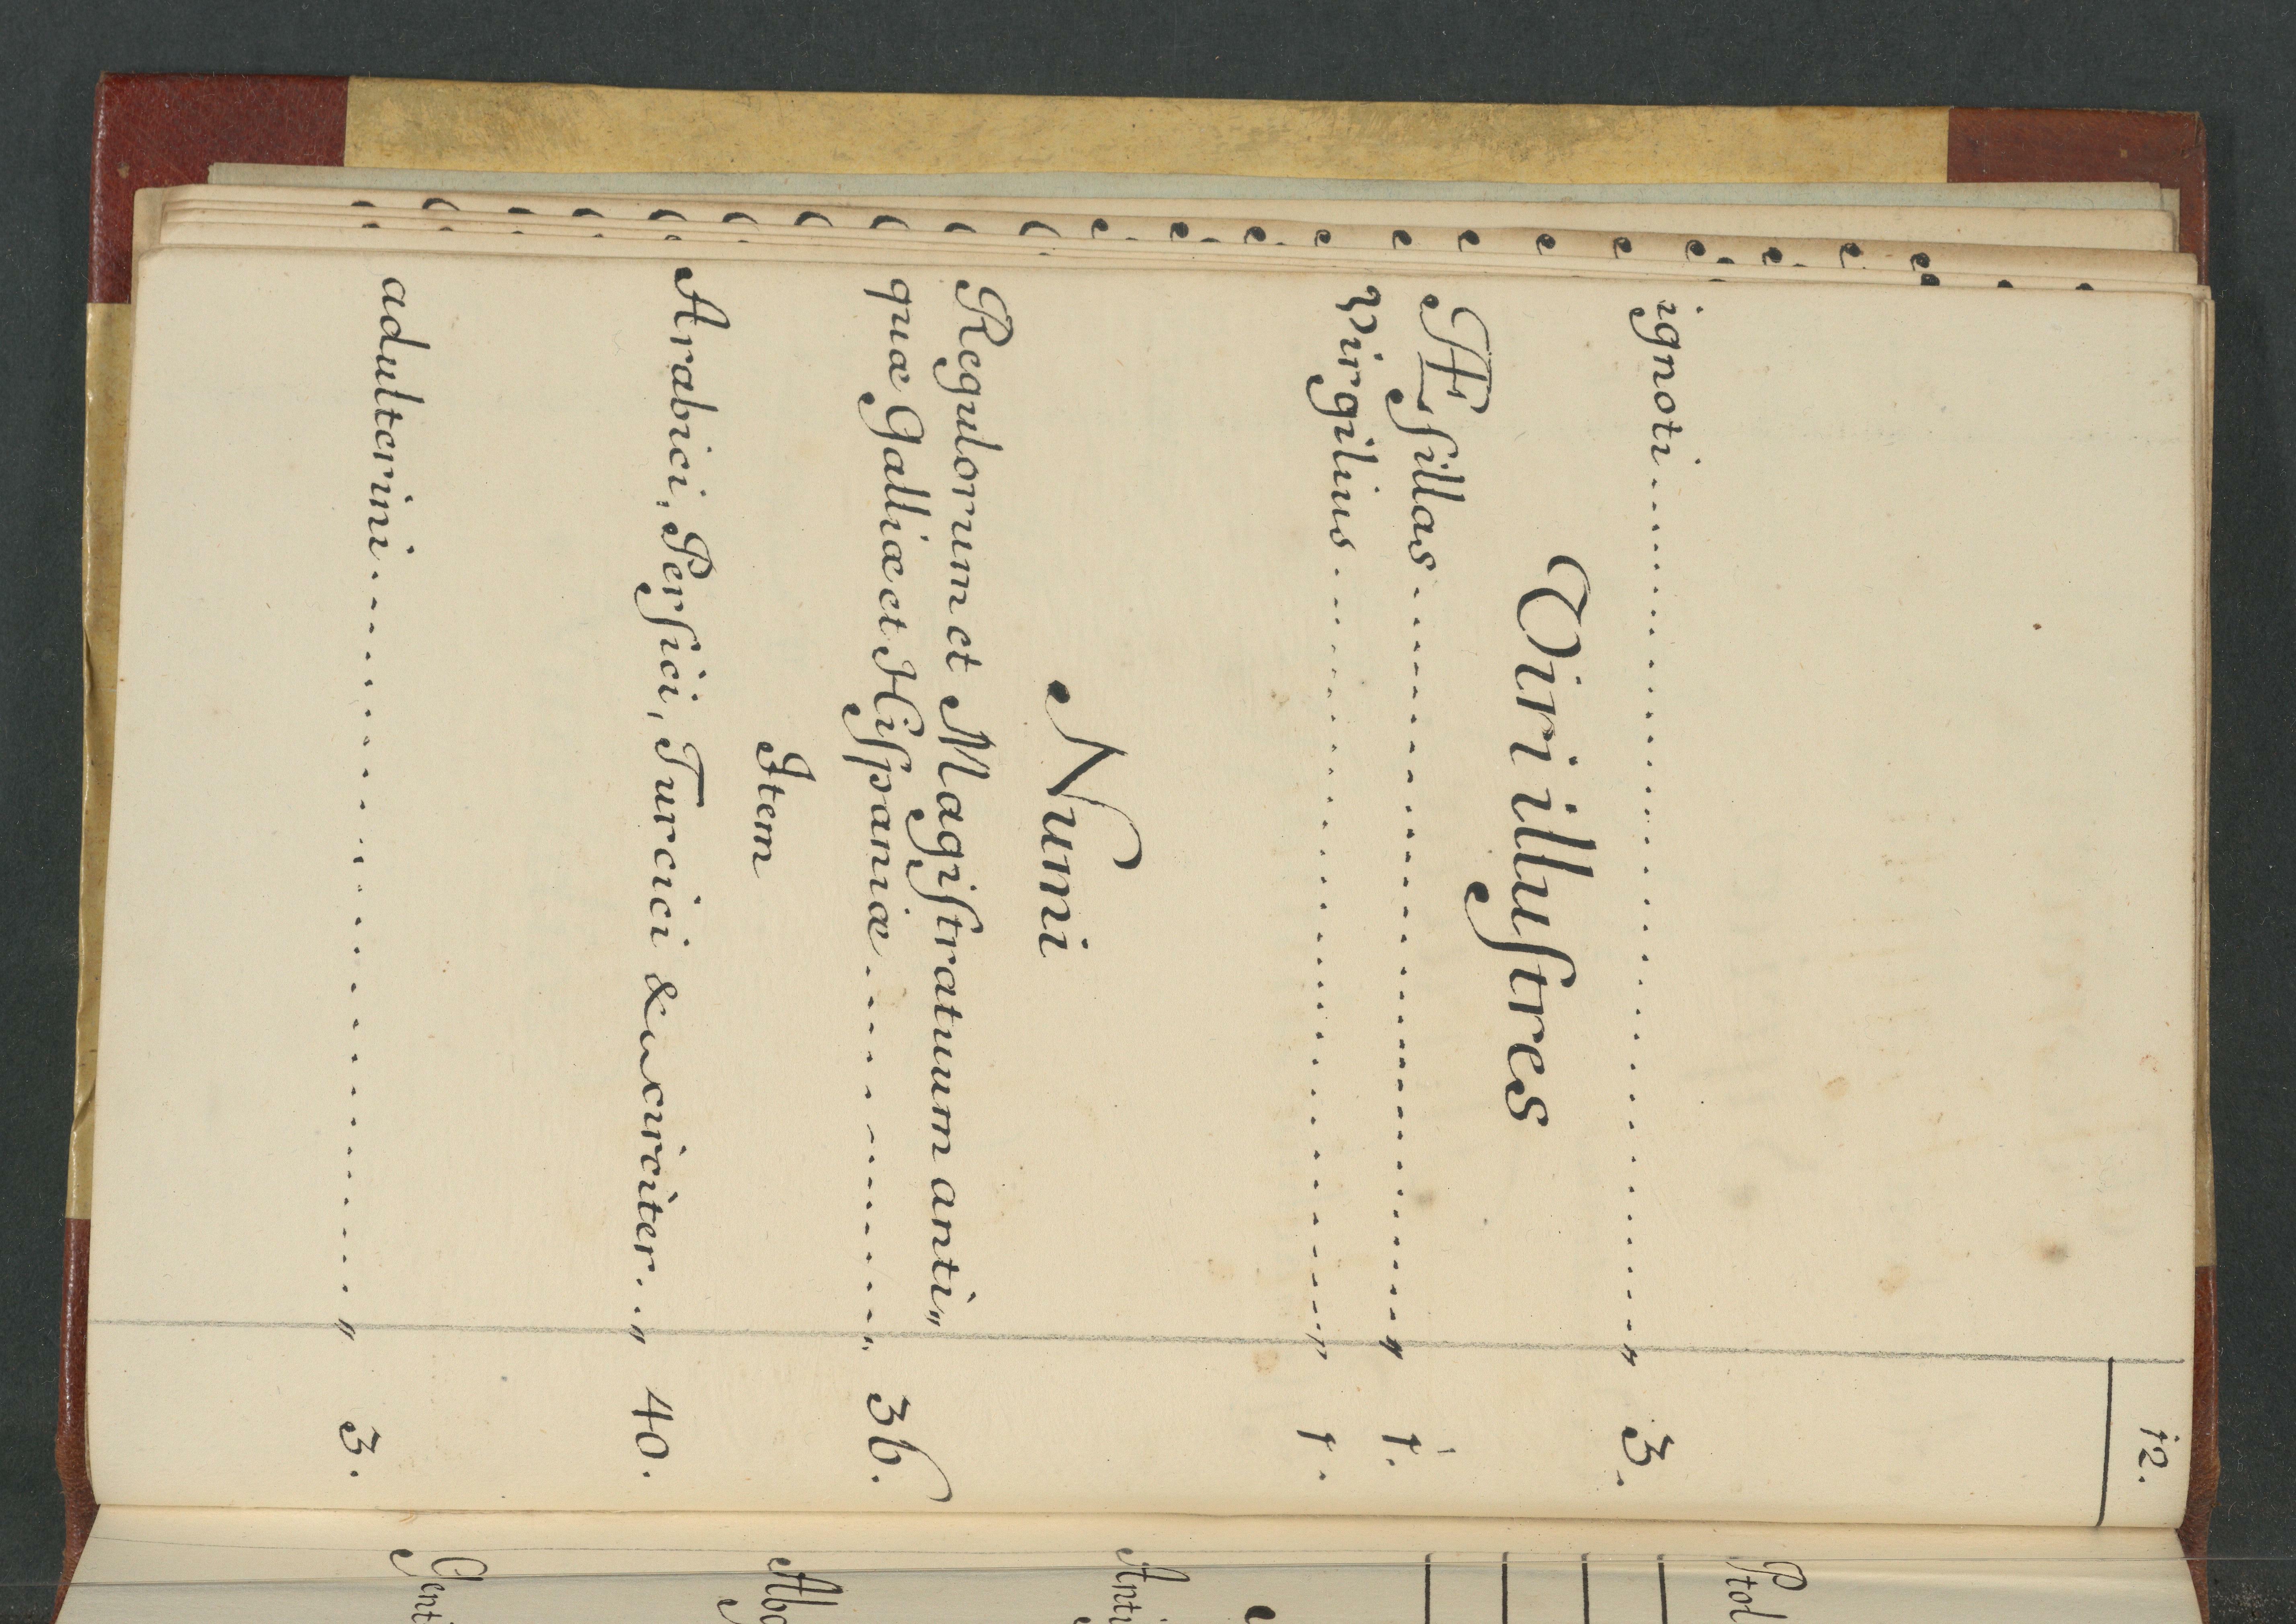 12.
ignoti . . . . . . . . . . „ 3.
Viri illuſtres
Æſillas . . . . . . . . . . „ 1.
Virgilius . . . . . . . . . . „ 1.
Numi
Regulorum et Magiſtratuum anti„
quæ Galliæ et Hiſpaniæ . . . . . . . . . . „ 36.
Item
Arabici, Perſici, Turcici & circiter . . „ 40.
adulterini . . . . . . . . . . „ 3.
Ptol
Anti
Gent